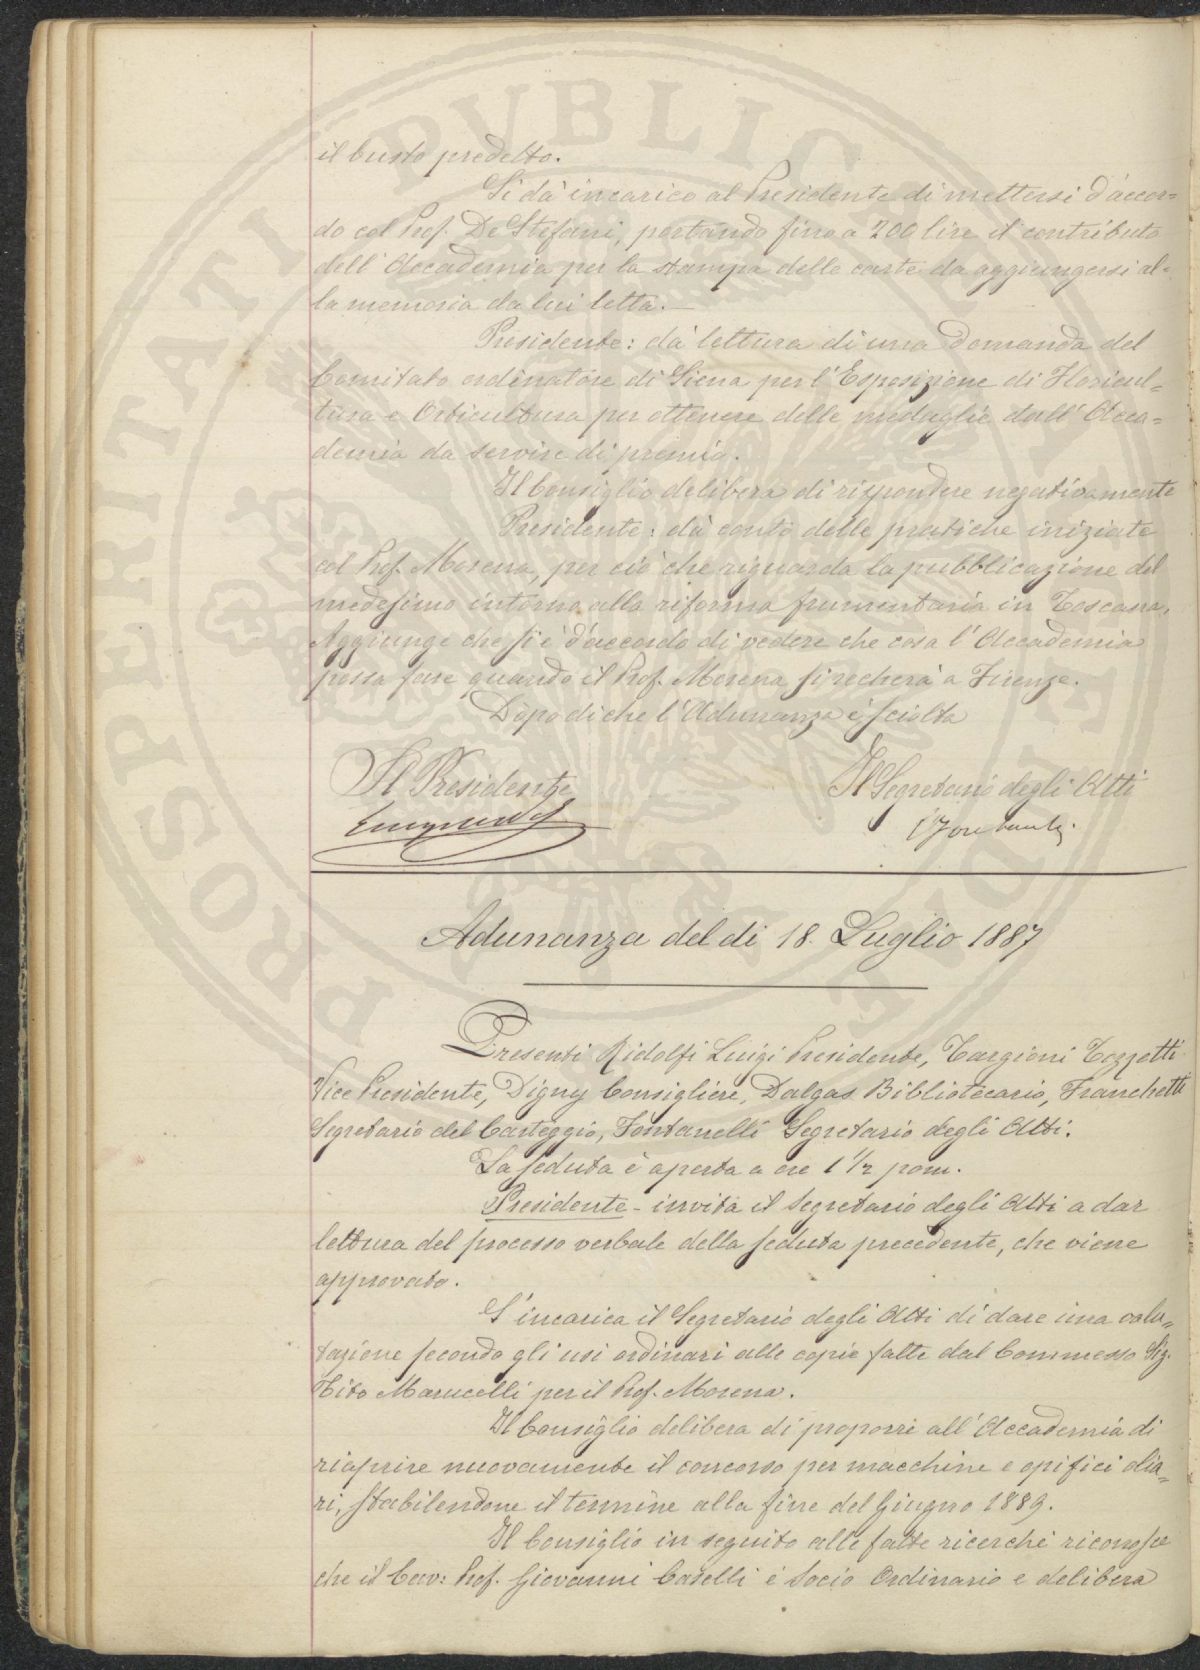 il busto predetto.
Si dà incarico al Presidente di mettersi d'accor=
do col Prof. De Stefani, portando fino a 200 lire il contributo
dell'Accademia per la stampa delle carte da aggiungersi al=
la memoria da lui letta.—
Presidente: dà lettura di una domanda del
Comitato ordinatore di Siena per l'Esposizione di Floricul=
tura e Orticultura per ottenere delle medaglie dall'Acca=
demia da servire di premio.
Il Consiglio delibera di rispondere negativamente
Presidente: dà conto delle pratiche iniziate
col Prof. Morena, per ciò che riguarda la pubblicazione del
medesimo intorno alla riforma frumentaria in Toscana.
Aggiunge che si è d'accordo di vedere che cosa l'Accademia
possa fare quando il Prof. Morena si recherà a Firenze.
Dopo di che l'Adunanza è sciolta
Il Presidente
Il Segretario degli Atti
Adunanza del dì 18. Luglio 1887
Presenti Ridolfi Luigi Presidente, Targioni Tozzetti
Vice Presidente, Digny Consigliere, Dalgas Bibliotecario, Franchetti
Segretario del Carteggio, Fontanelli Segretario degli Atti.
La seduta è aperta a ore 1 1/2 pom.
Presidente - invita il Segretario degli Atti a dar
lettura del processo verbale della seduta precedente, che viene
approvato.
S'incarica il Segretario degli Atti di dare una valu=
tazione secondo gli usi ordinari alle copie fatte dal Commesso Sig.
Tito Marucelli per il Prof. Morena.
Il Consiglio delibera di proporre all'Accademia di
riaprire nuovamente il concorso per macchine e opifici olia=
ri, stabilendone il termine alla fine del Giugno 1889.
Il Consiglio in seguito alle fatte ricerche riconosce
che il Cav: Prof. Giovanni Caselli è Socio Ordinario e delibera
PROSPERITATI PVBLICAE